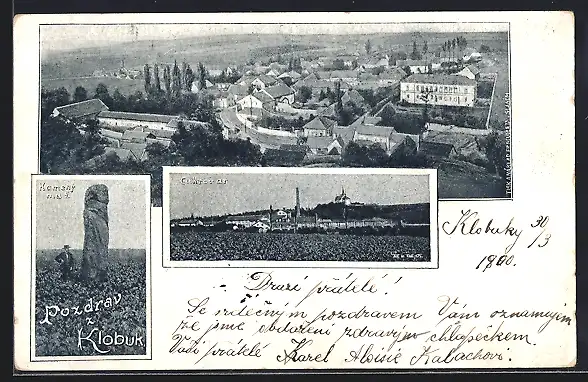 Kamenný muž
Cukrovar
Pozdrav
z Klobuk
Klobuky 30/3
1900.
Drazí přátelé!
Se srdečným pozdravem Vám oznamujem
že jsme obdařeni zdravým chlapečkem.
Vaši přátelé Karel Aloisie Kabachovi.